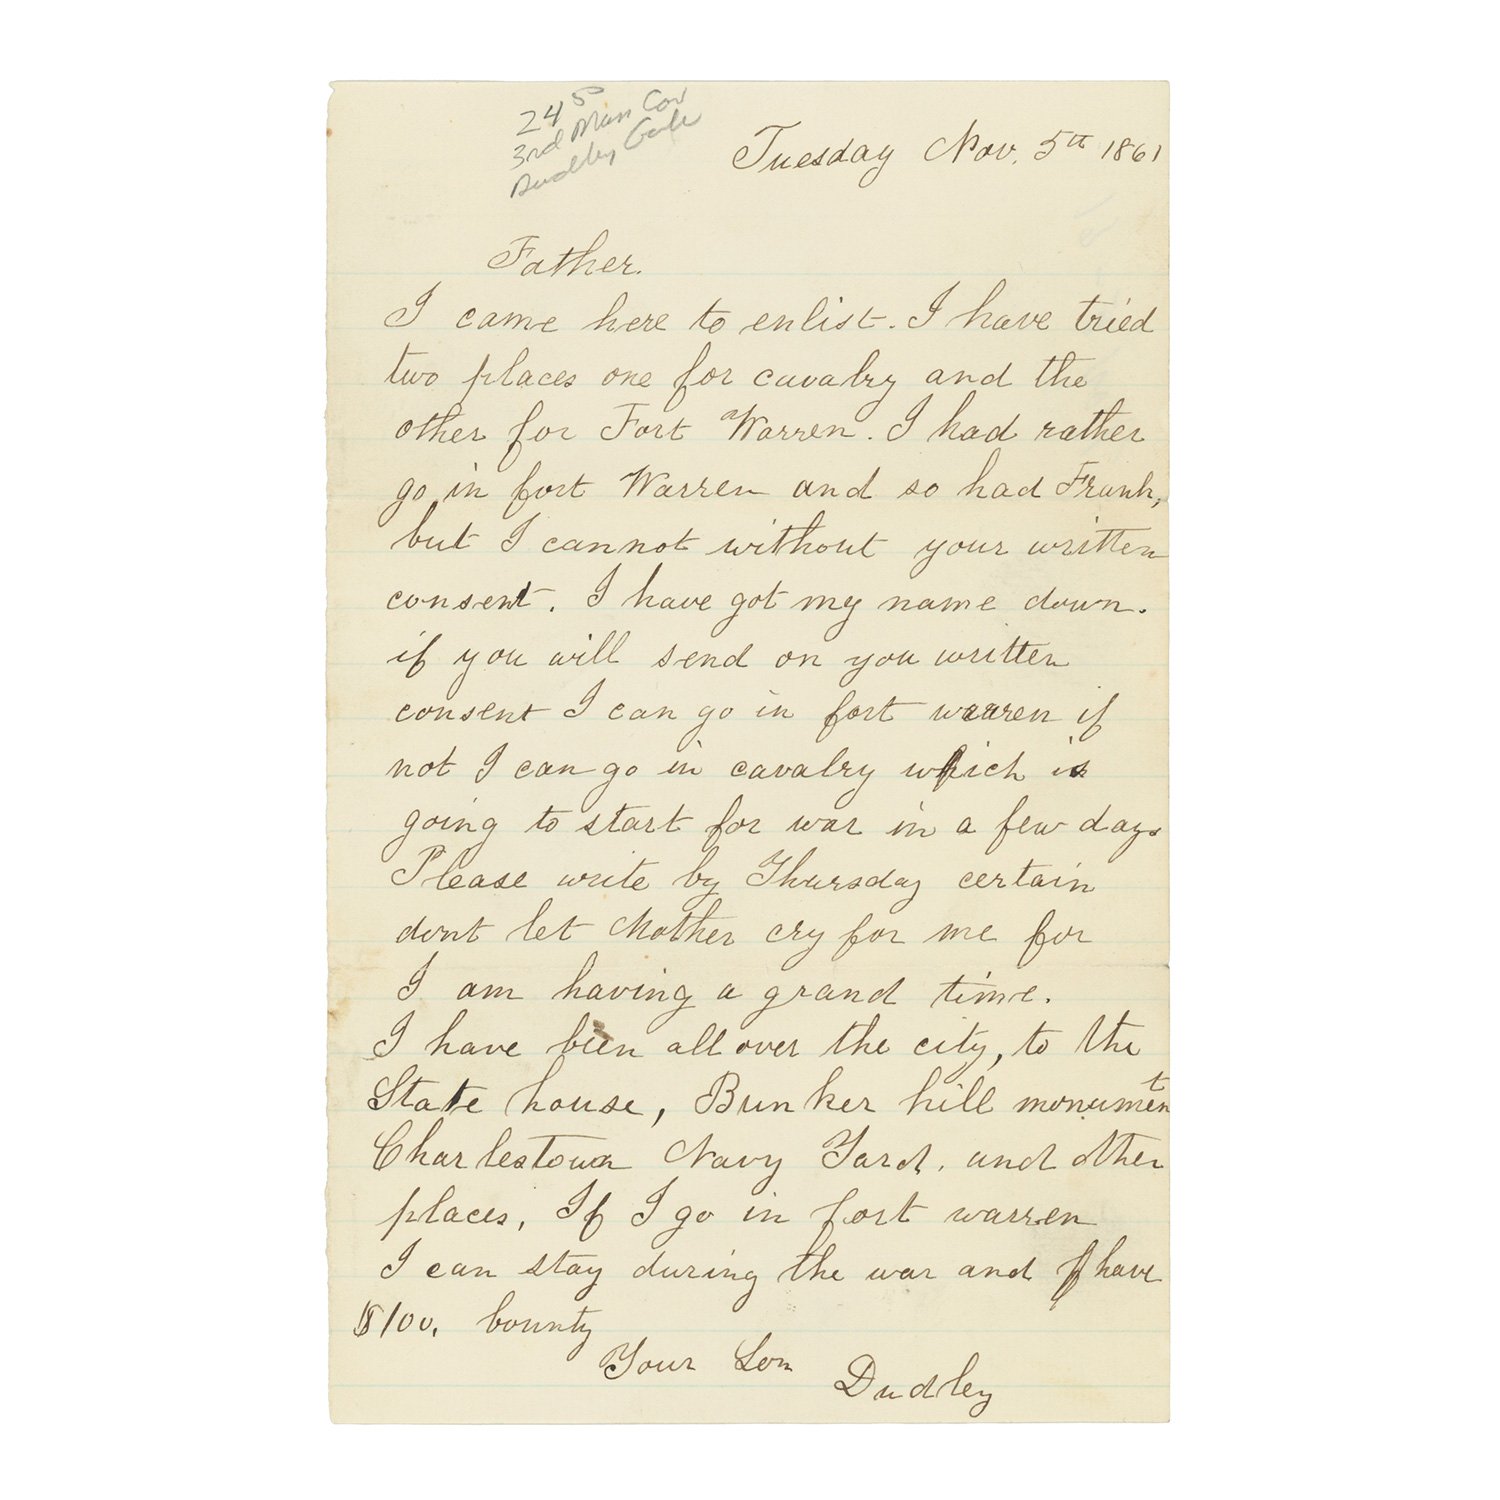 24 5
3rd Mass Cav
Dudley Gale
Tuesday Nov. 5th 1861
Father.
I came here to enlist. I have tried
two places one for cavalry and the
other for Fort Warren. I had rather
go in fort Warren and so had Frank,
but I cannot without your written
consent. I have got my name down.
if you will send on you written
consent I can go in fort warren if
not I can go in cavalry which is
going to start for war in a few days
Please write by Thursday certain
dont let Mother cry for me for
I am having a grand time.
I have been all over the city, to the
State house, Bunker hill monument
Charlestown Navy Yard, and other
places, If I go in fort warren
I can stay during the war and I have
$100. bounty
Your Son
Dudley